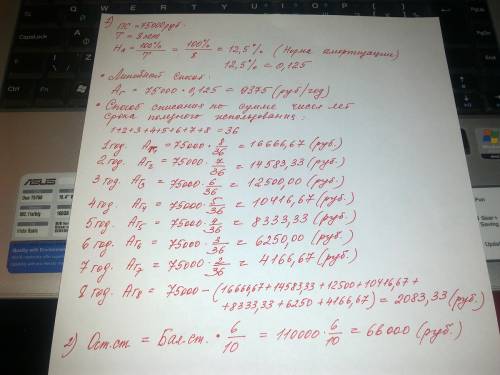 1) ПС = 75000 руб.
T = 8 лет
Hа = 100%/T = 100%/8 = 12,5% (Норма амортизации)
12,5% = 0,125
• Линейный способ:
Аг = 75000 · 0,125 = 9375 (руб/год)
• Способ списания по сумме чисел лет
срока полезного использования:
1+2+3+4+5+6+7+8 = 36
1 год. Аг1 = 75000 · 8/36 = 16666,67 (руб.)
2 год. Аг2 = 75000 · 7/36 = 14583,33 (руб.)
3 год. Аг3 = 75000 · 6/36 = 12500,00 (руб.)
4 год. Аг4 = 75000 · 5/36 = 10416,67 (руб.)
5 год. Аг5 = 75000 · 4/36 = 8333,33 (руб.)
6 год. Аг6 = 75000 · 3/36 = 6250,00 (руб.)
7 год. Аг7 = 75000 · 2/36 = 4166,67 (руб.)
8 год. Аг8 = 75000 - (16666,67+14583,33+12500+10416,67+
+8333,33+6250+4166,67) = 2083,33 (руб.)
2) Ост.ст. = Бал.ст. · 6/10 = 110000 · 6/10 = 66000 (руб.)
ASUS